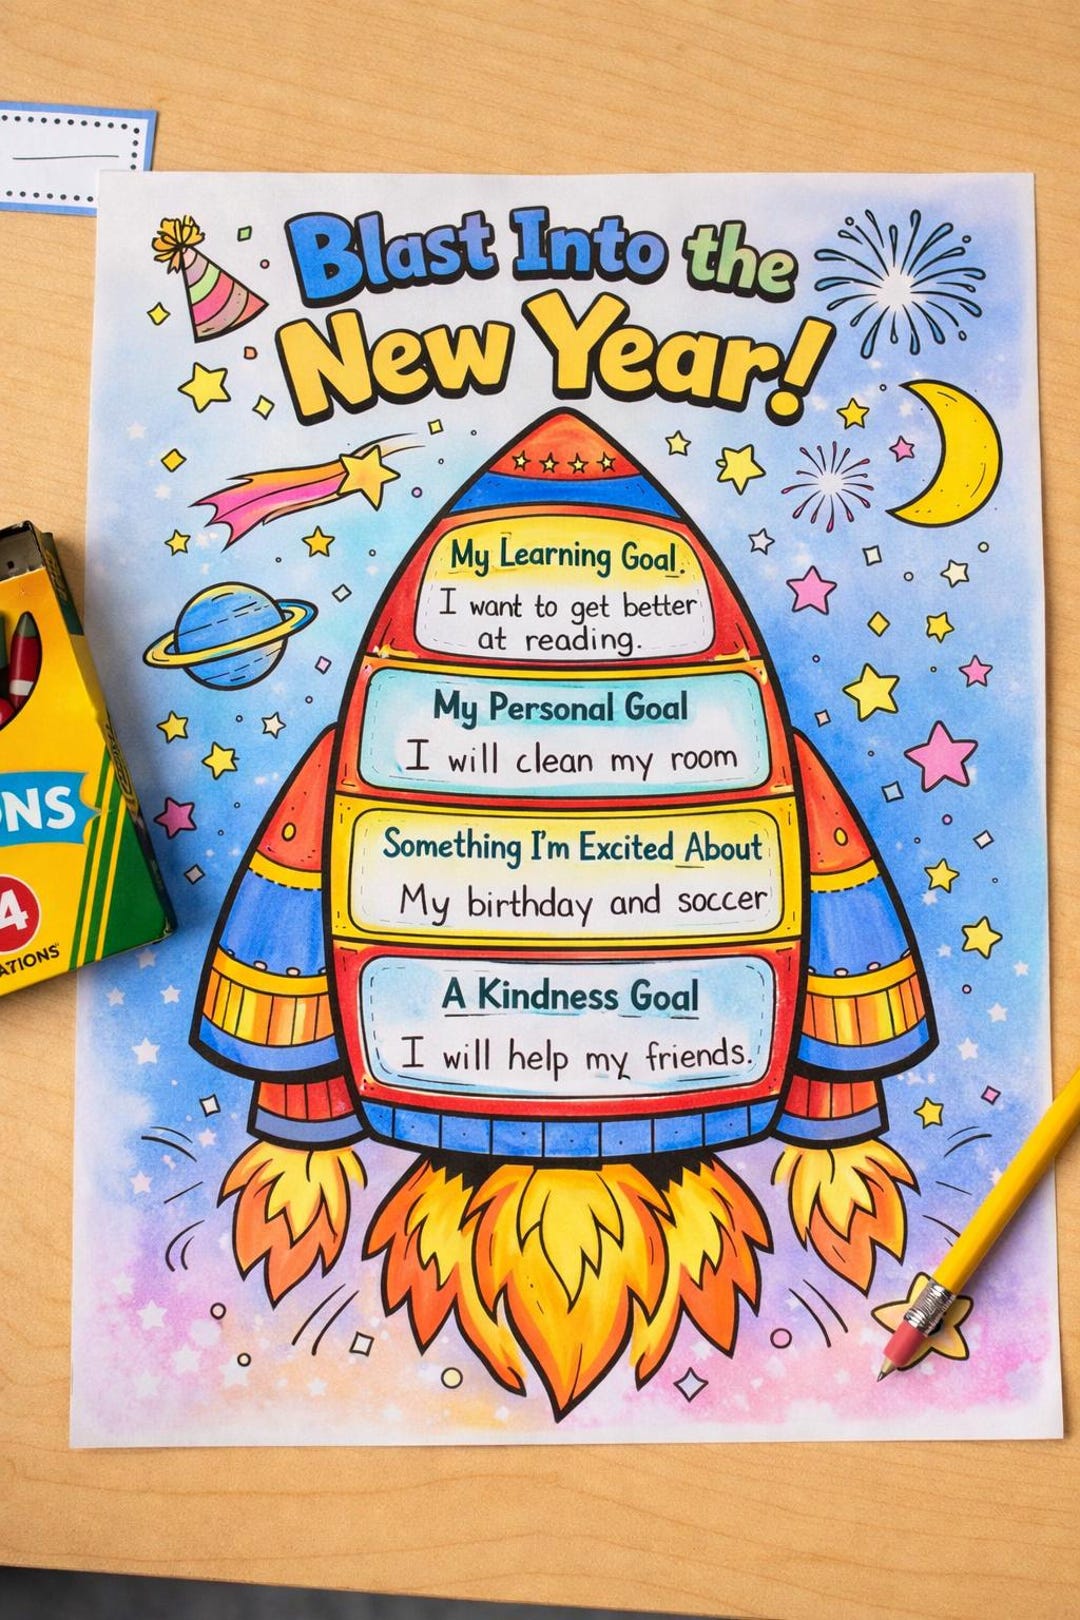 Blast Into the
New Year!
My Learning Goal.
I want to get better
at reading.
My Personal Goal
I will clean my room
Something I'm Excited About
My birthday and soccer
A Kindness Goal
I will help my friends.
ONS
4
ATIONS